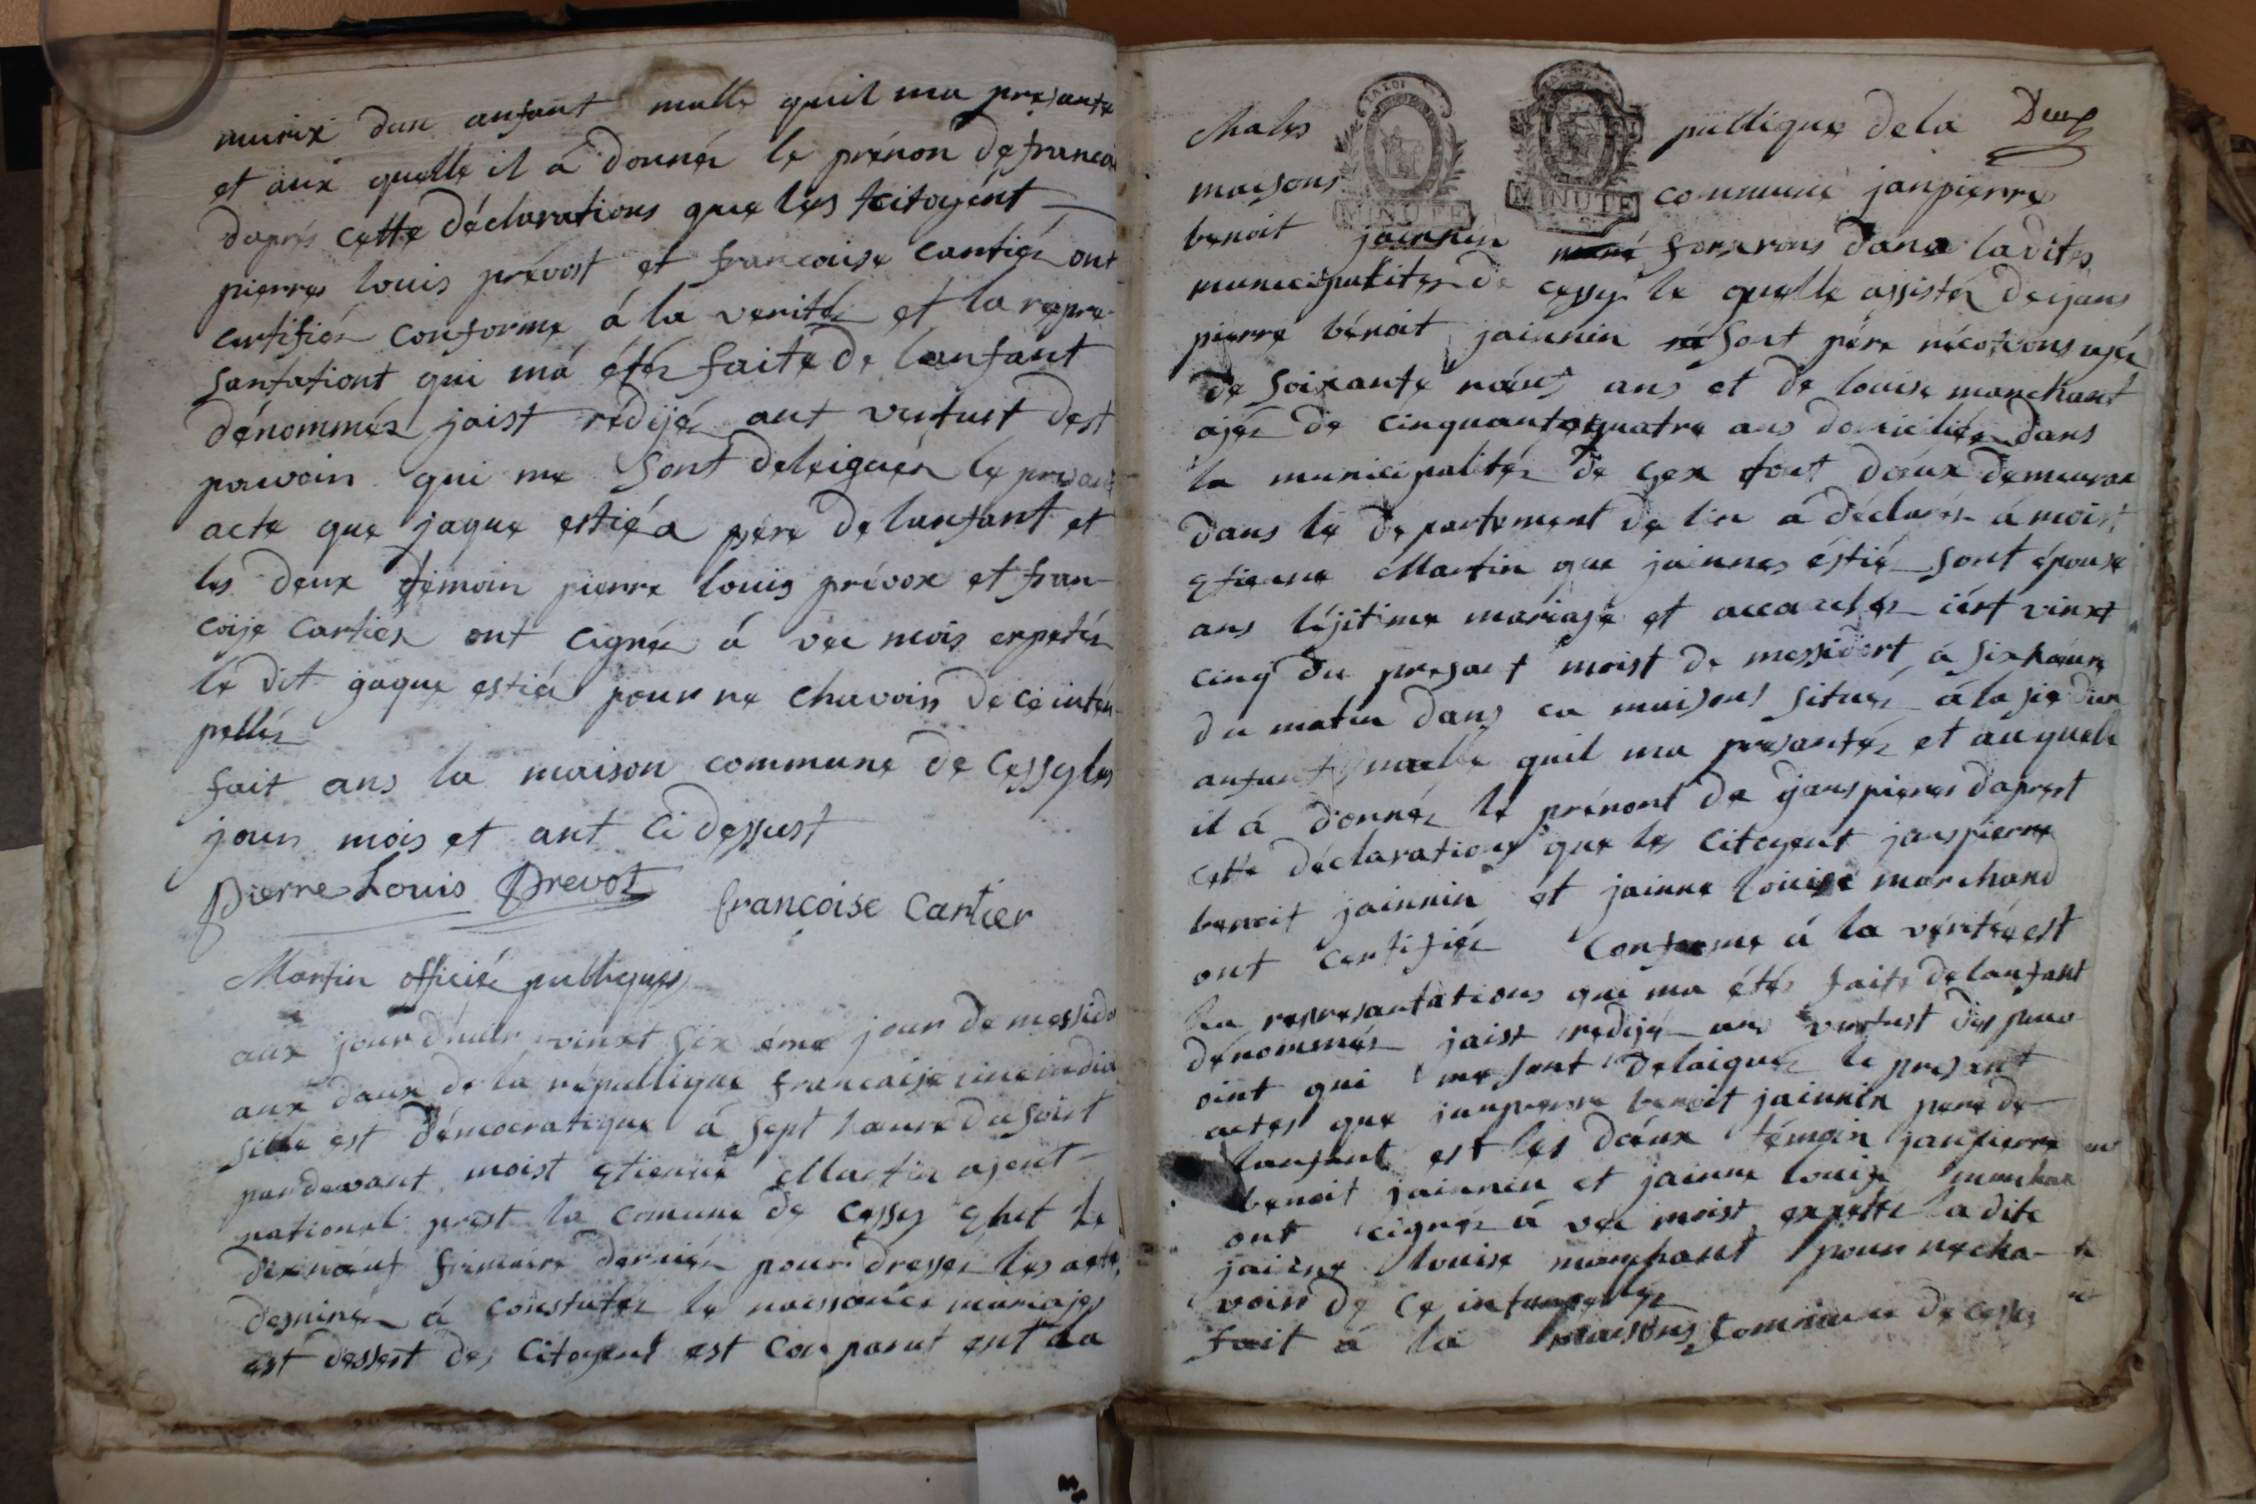 murix dun anfant malle quil ma presante
et aux quelle il á donnér le prénon De francoi
daprés cette Déclarations que les citoyént
pierres louis prévost et francoise cartiér ont
certifiér conforme á la veritér et la repre-
santationt qui má étér faite De lanfant
dénommér jaist redijér ant vertust Dest
pouvoir qui me sont deleiguér le presant
acte que jaque estiéa pere De lanfant et
les deux témoin pierre louis prévox et fran-
coise cartiér ont cignér á vec mois exeptér
le dit jaque estiér pour ne chavoir De ce intér-
pellér
fait ans la maison commune De Cessy les
jour mois et ant Ci Dessust
Pierre Louis Prevot françoise Cartier
Martin officié publiques
aux jourdhuir vinxt six éme jour De messido
aux Daux De la républlique francaise une indivi
sible est Démocratique á sept heure Du soirt
pardevant moist Etienne Martin ajent
national prest la comune De Cessy Elut le
dixneuf frimaire derniér pour dresser les acte
destinér á constater le naissance mariajes
est dessest des Citoyent est comparut ent la
Males publlique de la Deux
maisons commune janpierre
benoit jainnin forxrons Dans laDites
municipalitér De cessy le quelle assistér De jans
pierre bénoit jainnin sont pére nécotions ajér
De soixante neuf ans et De louise marchant
ajér De cinquantequatre ans Domiciliér Dans
la municipalitér De Gex tout Deux Demeurant
Dans le Departement De lin á déclarér á moist
Etienne Martin que jainnes éstiér sont épouse
ans léjitime mariage et accouchér iérst vinxt
cinq Du presant moist De messidort á sixheure
Du matin Dans ca maisons situér á lasie Dun
anfant malle quil ma presantér et auquelle
il á Donnér le prénont De jans pierres Daprest
cette Déclarations que les citoyent jans pierre
benoit jainnin et jainne louise marchand
ont certifiér Conforme á la véritér est
la represantations qui ma étér faite De lanfant
Dénommér jaist redijé ans vertust Des pouv
oint qui me sont Delaiguér le presant
actes que janpierre benoit jainnin pere De
lanfant est les Deux témoin janpierre
benoit jainnin et jainne louise marchan
ont cignér á vec moist exepter la Dite
jainne louise marchant pour necha-
voir De ce intarpeller
fait á la maisons commune De Cessy